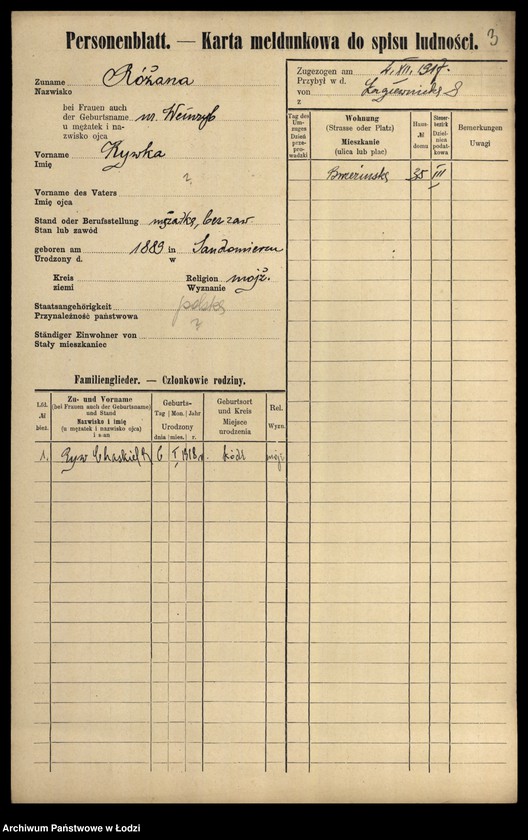 3
Personenblatt. — Karta meldunkowa do spisu ludności.
Zuname
Nazwisko
Różana
bei Frauen auch
der Geburtsname
u mężatek i na-
zwisko ojca
Vorname
Imię
Rywka
Vorname des Vaters
Imię ojca
Stand oder Berufsstellung
Stan lub zawód
mężatka,
geboren am 1889 in Sandomierzu
Urodzony d. w
Kreis
ziemi
Religion
Wyznanie
mojż.
Staatsangehörigkeit
Przynależność państwowa
polska
Ständiger Einwohner von
Stały mieszkaniec
Zugezogen am
Przybył w d.
4. XII. 1917.
von
z
Łagiewnicka 8
Tag des Um-zuges
Dzień prze-pro-wadzki
Wohnung
(Strasse oder Platz)
Mieszkanie
(ulica lub plac)
Haus-
№
domu
Steuer-bezirk
Dziel-nica podat-kowa
Bemerkungen
Uwagi
Brzezińska 35 III
Familienglieder. — Członkowie rodziny.
Lfd.
№
bież.
Zu- und Vorname
(bei Frauen auch der Geburtsname)
und Stand
Nazwisko i imię
(u mężatek i nazwisko ojca)
i stan
Geburts-
Tag Mon. Jahr
Urodzony
dnia mies. r.
Geburtsort
und Kreis
Miejsce
urodzenia
Rel.
Wyzn.
1. Chaskiel 6 I 1918 r. Łódź mojż
Archiwum Państwowe w Łodzi